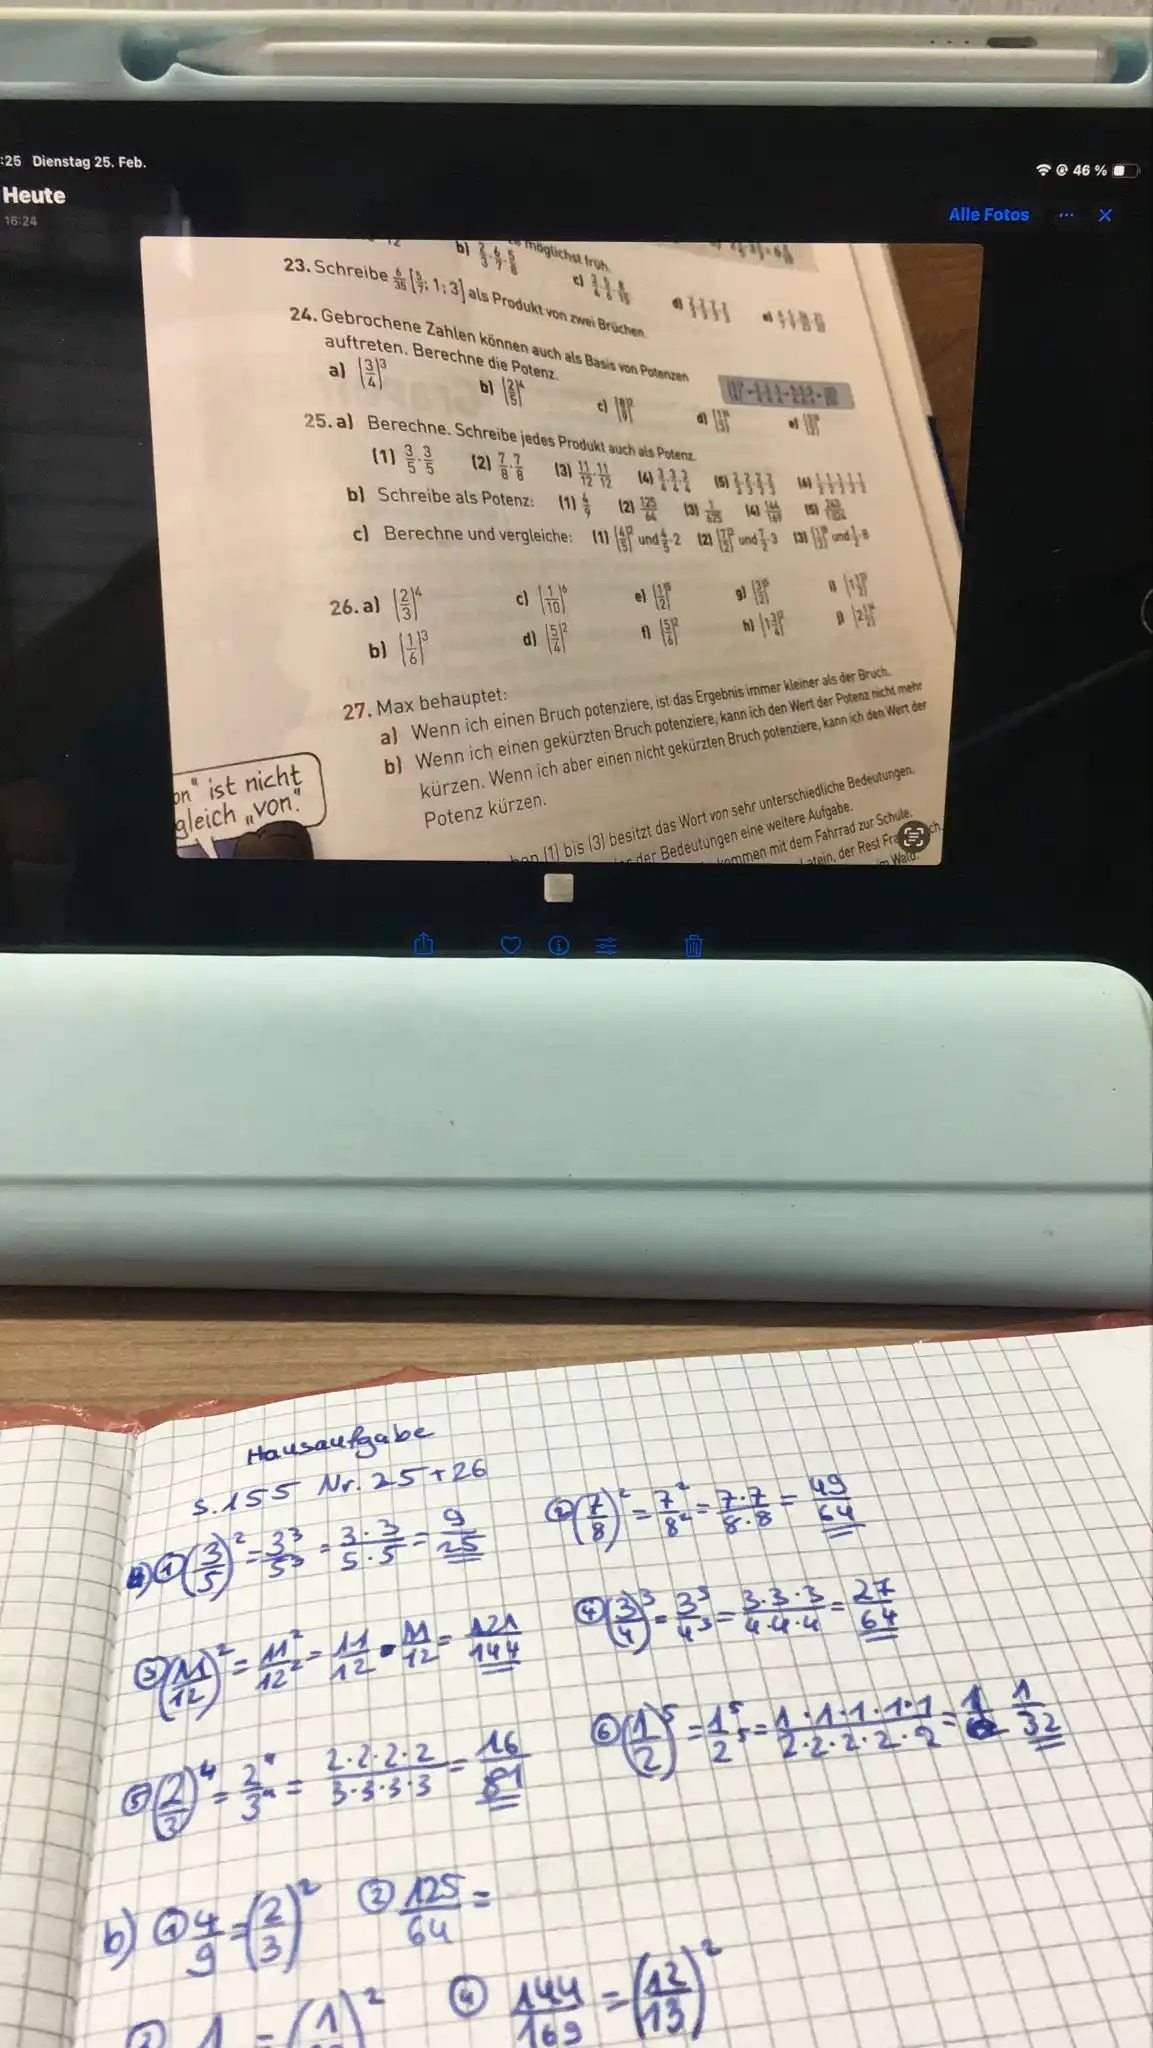 :25 Dienstag 25. Feb.
46 %
Heute
16:24
Alle Fotos ··· ×
möglichst früh.
b) 2/3 · 6/7 · 5/8
c)
d)
e)
23. Schreibe 6/35 [5/7; 1; 3] als Produkt von zwei Brüchen.
24. Gebrochene Zahlen können auch als Basis von Potenzen
auftreten. Berechne die Potenz.
a) (3/4)³ b) (2/5)⁴ c) d) e)
25. a) Berechne. Schreibe jedes Produkt auch als Potenz.
(1) 3/5 · 3/5 (2) 7/8 · 7/8 (3) 11/12 · 11/12 (4) 3/4 · 3/4 · 3/4 (5) 2/3 · 2/3 · 2/3 · 2/3 (6) 1/2 · 1/2 · 1/2 · 1/2 · 1/2
b) Schreibe als Potenz: (1) 4/9 (2) 125/64 (3) 1/625 (4) 144/169 (5)
c) Berechne und vergleiche: (1) (4/5)² und 4/5 · 2 (2) (7/2)³ und 7/2 · 3 (3) und 1/2 · 8
26. a) (2/3)⁴ c) (1/10)⁶ e) g) i)
b) (1/6)³ d) (5/4)² f) (5/6)² h) (1 3/4)² j)
27. Max behauptet:
a) Wenn ich einen Bruch potenziere, ist das Ergebnis immer kleiner als der Bruch.
b) Wenn ich einen gekürzten Bruch potenziere, kann ich den Wert der Potenz nicht mehr
kürzen. Wenn ich aber einen nicht gekürzten Bruch potenziere, kann ich den Wert der
Potenz kürzen.
on" ist nicht
gleich „von."
(1) bis (3) besitzt das Wort von sehr unterschiedliche Bedeutungen.
der Bedeutungen eine weitere Aufgabe.
kommen mit dem Fahrrad zur Schule.
Latein, der Rest
Wald.
Hausaufgabe
S. 155 Nr. 25 + 26
a) ① (3/5)² = 3³/5³ = 3 · 3/5 · 5 = 9/25 ② (7/8)² = 7²/8² = 7 · 7/8 · 8 = 49/64
③ (11/12)² = 11²/12² = 11/12 · 11/12 = 121/144 ④ (3/4)³ = 3³/4³ = 3 · 3 · 3/4 · 4 · 4 = 27/64
⑤ (2/3)⁴ = 2⁴/3⁴ = 2 · 2 · 2 · 2/3 · 3 · 3 · 3 = 16/81 ⑥ (1/2)⁵ = 1⁵/2⁵ = 1 · 1 · 1 · 1 · 1/2 · 2 · 2 · 2 · 2 = 1/32
b) ① 4/9 = (2/3)² ② 125/64 =
③ 1 = (1 )² ④ 144/169 = (12/13)²